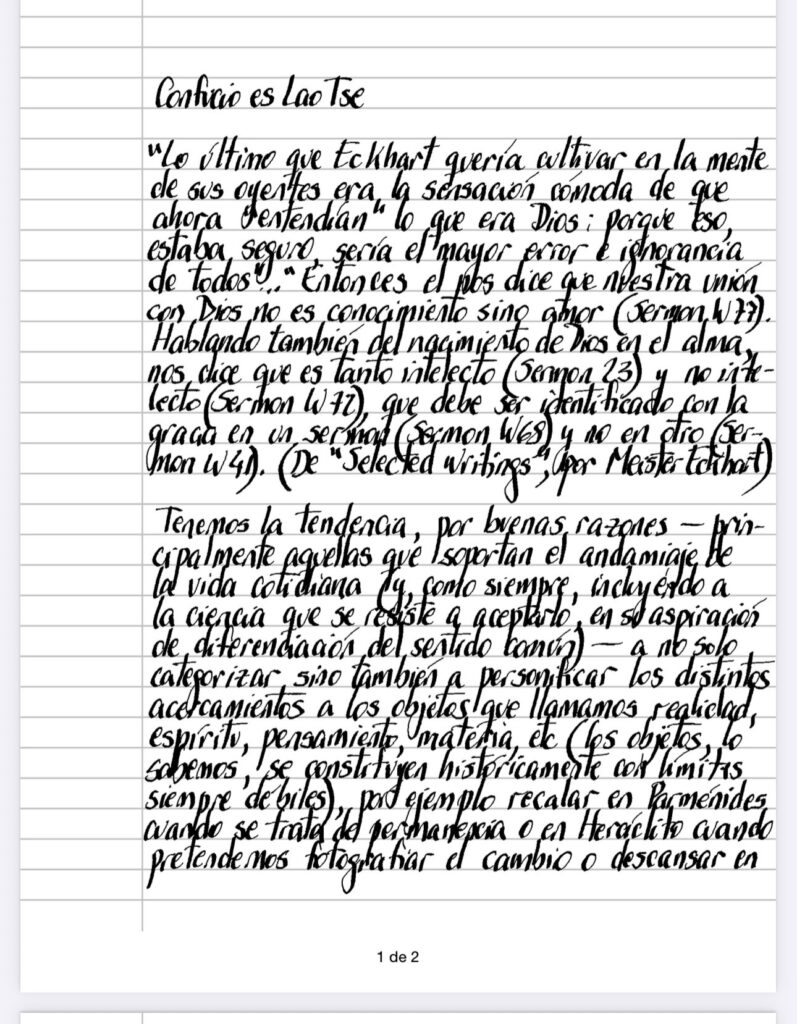 Confucio es Lao Tse
"Lo último que Eckhart quería cultivar en la mente
de sus oyentes era la sensación cómoda de que
ahora "entendían" lo que era Dios; porque eso,
estaba seguro, sería el mayor error e ignorancia
de todos"..." Entonces el nos dice que nuestra unión
con Dios no es conocimiento sino amor (Sermon W 77).
Hablando también del nacimiento de Dios en el alma,
nos dice que es tanto intelecto (Sermon 23) y no inte-
lecto (Sermon W 72), que debe ser identificado con la
gracia en un sermón (Sermon W68) y no en otro (Ser-
mon W 41). (De "Selected Writings", por Meister Eckhart)
Tenemos la tendencia, por buenas razones – prin-
cipalmente aquellas que soportan el andamiaje de
la vida cotidiana (y, como siempre, incluyendo a
la ciencia que se resiste a aceptarlo, en su aspiración
de diferenciación del sentido común) – a no solo
categorizar sino también a personificar los distintos
acercamientos a los objetos que llamamos realidad,
espíritu, pensamiento, materia, etc (los objetos, lo
sabemos, se constituyen históricamente con límites
siempre débiles), por ejemplo recalar en Parménides
cuando se trata de permanencia o en Heráclito cuando
pretendemos fotografiar el cambio o descansar en
1 de 2